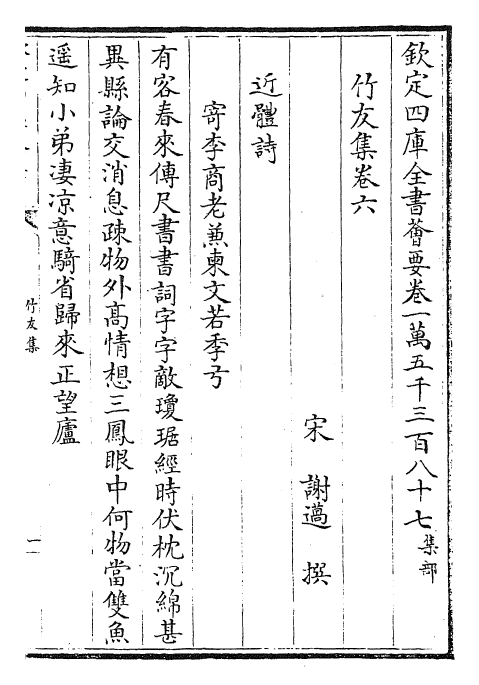 欽定四庫全書薈要卷一萬五千三百八十七集部
竹友集卷六
宋 謝薖 撰
近體詩
寄李商老兼柬文若季弓
有客春來傳尺書書詞字字敵瓊琚經時伏枕沉綿甚
異縣論交消息疎物外高情想三鳳眼中何物當雙魚
遥知小弟凄凉意騎省歸來正望廬
竹友集
一